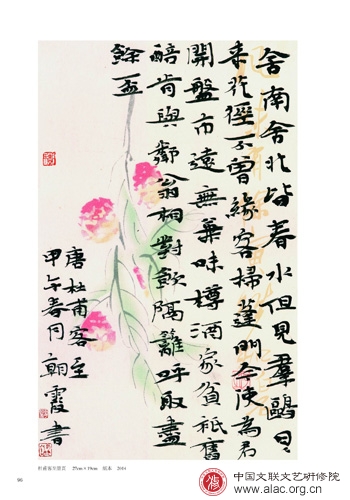 舍南舍北皆春水但見羣鷗日日
来花徑不曾緣客掃蓬門今使為君
開盤市遠無兼味樽酒家貧祇舊
醅肯與鄰翁相對飲隔籬呼取盡
餘盃
唐杜甫客至
甲午春月朝霞書
杜甫客至 27cm×19cm 纸本 2014
96
中国文联文艺研修院
www.alac.org.cn